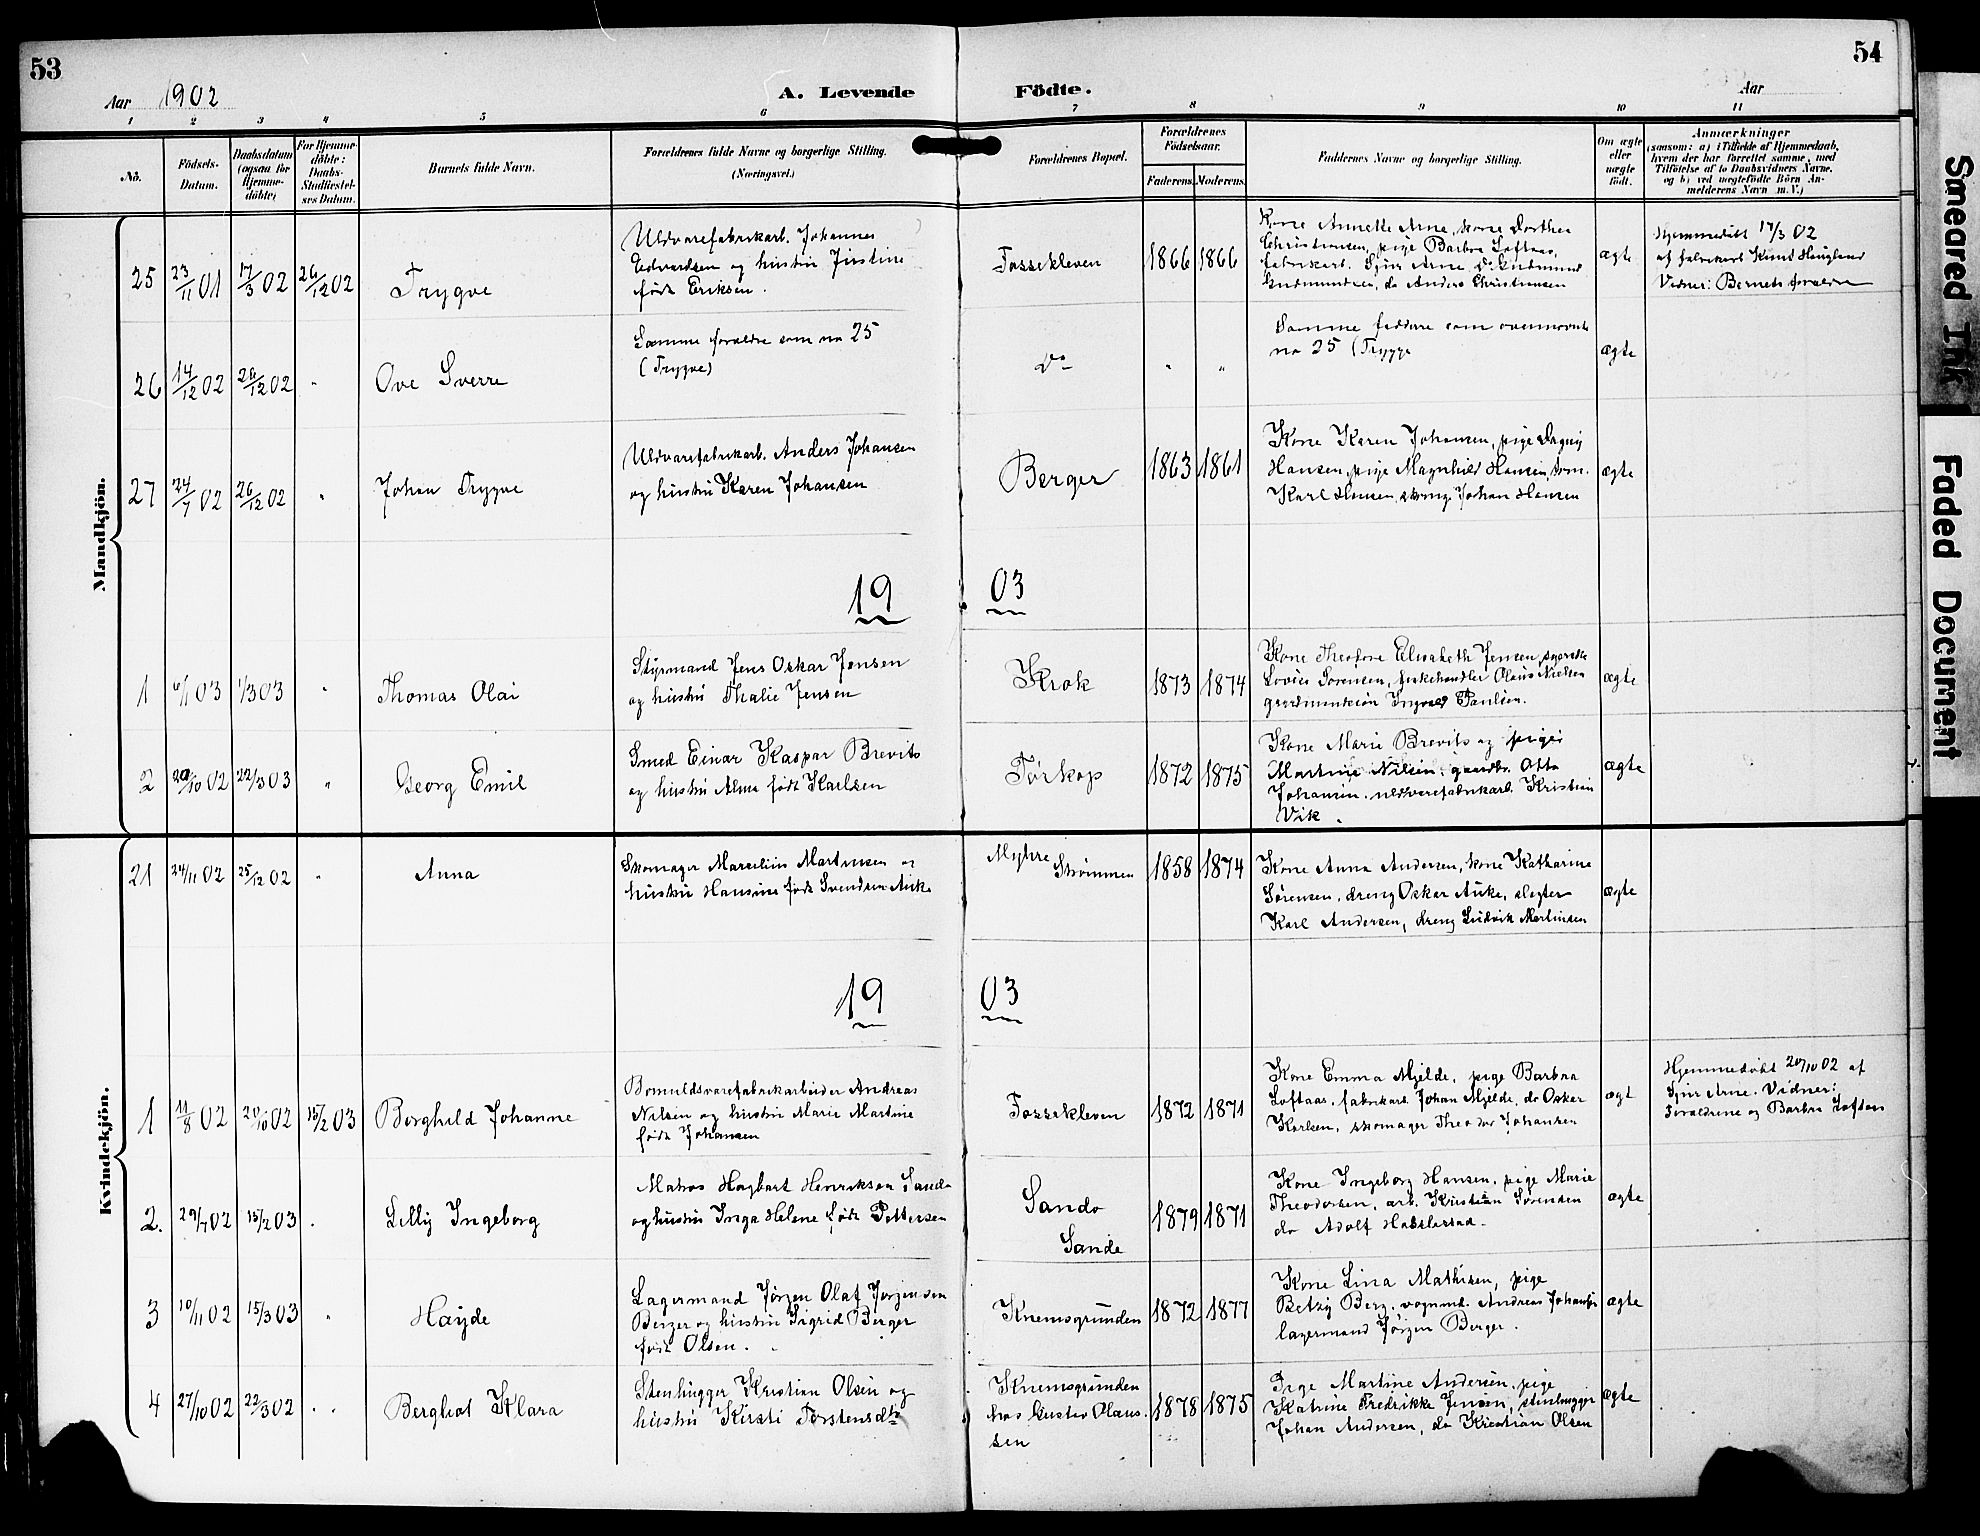 53
54
Aar 1902
A. Levende Födte.
Aar
1 2 3 4 5 6 7 8 9 10 11
No.
Födsels-
Datum.
Daabsdatum
(ogsaa for
Hjemme-
döbte)
For Hjemme-
döbte:
Daabs-
Stadfæstel-
ses Datum.
Barnets fulde Navn.
Forældrenes fulde Navne og borgerlige Stilling.
(Næringsvei.)
Forældrenes Bopæl.
Forældrenes
Födselsaar.
Faderens. Moderens.
Faddernes Navne og borgerlige Stilling.
Om ægte
eller
uægte
født.
Anmærkninger
(saasom: a) i Tilfælde af Hjemmedaab,
hvem der har forrettet samme, med
Tilföielse af to Daabsvidners Navne.
og b) ved uægtefödte Börn An-
melderens Navn m. V.)
Mandkjön.
25 23/11 01 17/3 02 26/12 02 Trygve
Uldvarefabrikarb. Johannes
Edvardsen og hustru Justine
født Eriksen.
Fossekleven 1866 1866
Kone Annette Arne, kone Dorthea
Christiansen, pige Barbra Loftaas,
fabrikarb. Sjur Arne, do Gudmund
Gudmundsen, do Anders Christiansen
ægte
Hjemmedøbt 17/3 02
af fabrikarb Knut Haugland
Vidner: Barnets forældre
26 14/12 02 26/12 02 " Ove Sverre
Samme forældre som no 25
(Trygve)
Do " "
Samme faddere som ovennævnte
no 25 (Trygve
ægte
27 24/7 02 26/12 02 " Johan Trygve
Uldvarefabrikarb. Anders Johansen
og hustru Karen Johansen
Berger 1863 1861
Kone Karen Johansen, pige Dagny
Hansen, pige Magnhild Hansen, tom.
Karl Hansen, Johan Hansen
ægte
19 03
1 6/1 03 1/3 03 " Thomas Olai
Styrmand Jens Oskar Jensen
og hustru Thalie Jensen
Krok 1873 1874
Kone Theodore Elisabeth Jensen,
Lovise Sørensen, fiskehandler Olaus Nielsen
Ingvald Paulsen.
ægte
2 20/10 02 22/3 03 " Georg Emil
Smed Einar Kaspar Brevits
og hustru Alma født Karlsen
Tørkop 1872 1875
Kone Marie Brevits og pige
Martine Nilsen, gaardbr. Otto
Johansen, uldvarefabrikarb. Kristian
Vik.
ægte
Kvindekjön.
21 24/11 02 25/12 02 " Anna
Skomager Marselius Martinsen og
hustru Hansine født Svendsen Auke
Myhre
Strømmen 1858 1874
Kone Anna Andersen, kone Katharine
Sørensen, dreng Oskar Auke, slagter
Karl Andersen, dreng Ludvik Martinsen
ægte
19 03
1 11/8 02 20/10 02 15/2 03 Borghild Johanne
Bomuldsvarefabrikarbeider Andreas
Nilsen og hustru Marie Martine
født Johansen
Fossekleven 1872 1871
Kone Emma Mjelde, pige Barbra
Loftaas, fabrikarb. Johan Mjelde, do Oskar
Karlsen, skomager Theodor Johansen
ægt
Hjemmedøbt 20/10 02 af
Sjur Arne. Vidner:
Forældrene og Barbra Loftaas
2. 29/7 02 15/2 03 . Lilly Ingeborg
Matros Hagbart Henriksen Sande
og hustru Inga Helene født Pettersen
Sando
Sande 1879 1871
Kone Ingeborg Hansen, pige Marie
Theodorsen, arb. Kristian Sørensen
do Adolf
ægte
3 10/11 02 15/3 03 " Hayde
Lagermand Jørgen Olaf Jørgensen
Berger og hustru Sigrid Berger
født Olsen.
Knemsgrunden 1872 1877
Kone Lina Mathisen, pige
Betzy Berg, vognmd. Andreas Johansen
lagermand Jørgen Berger.
ægte
4 27/10 02 22/3 02 . . Berghot Klara
Stenhugger Kristian Olsen og
hustru Kirsti Torstensdtr
Knemsgrunden
hos Gustav Olaus-
sen 1878 1875
Pige Martine Andersen, pige
Katrine Fredrikke Jensen, stenhugger
Johan Andersen, do Kristian Olsen
ægte
Smeared Ink
Faded Document